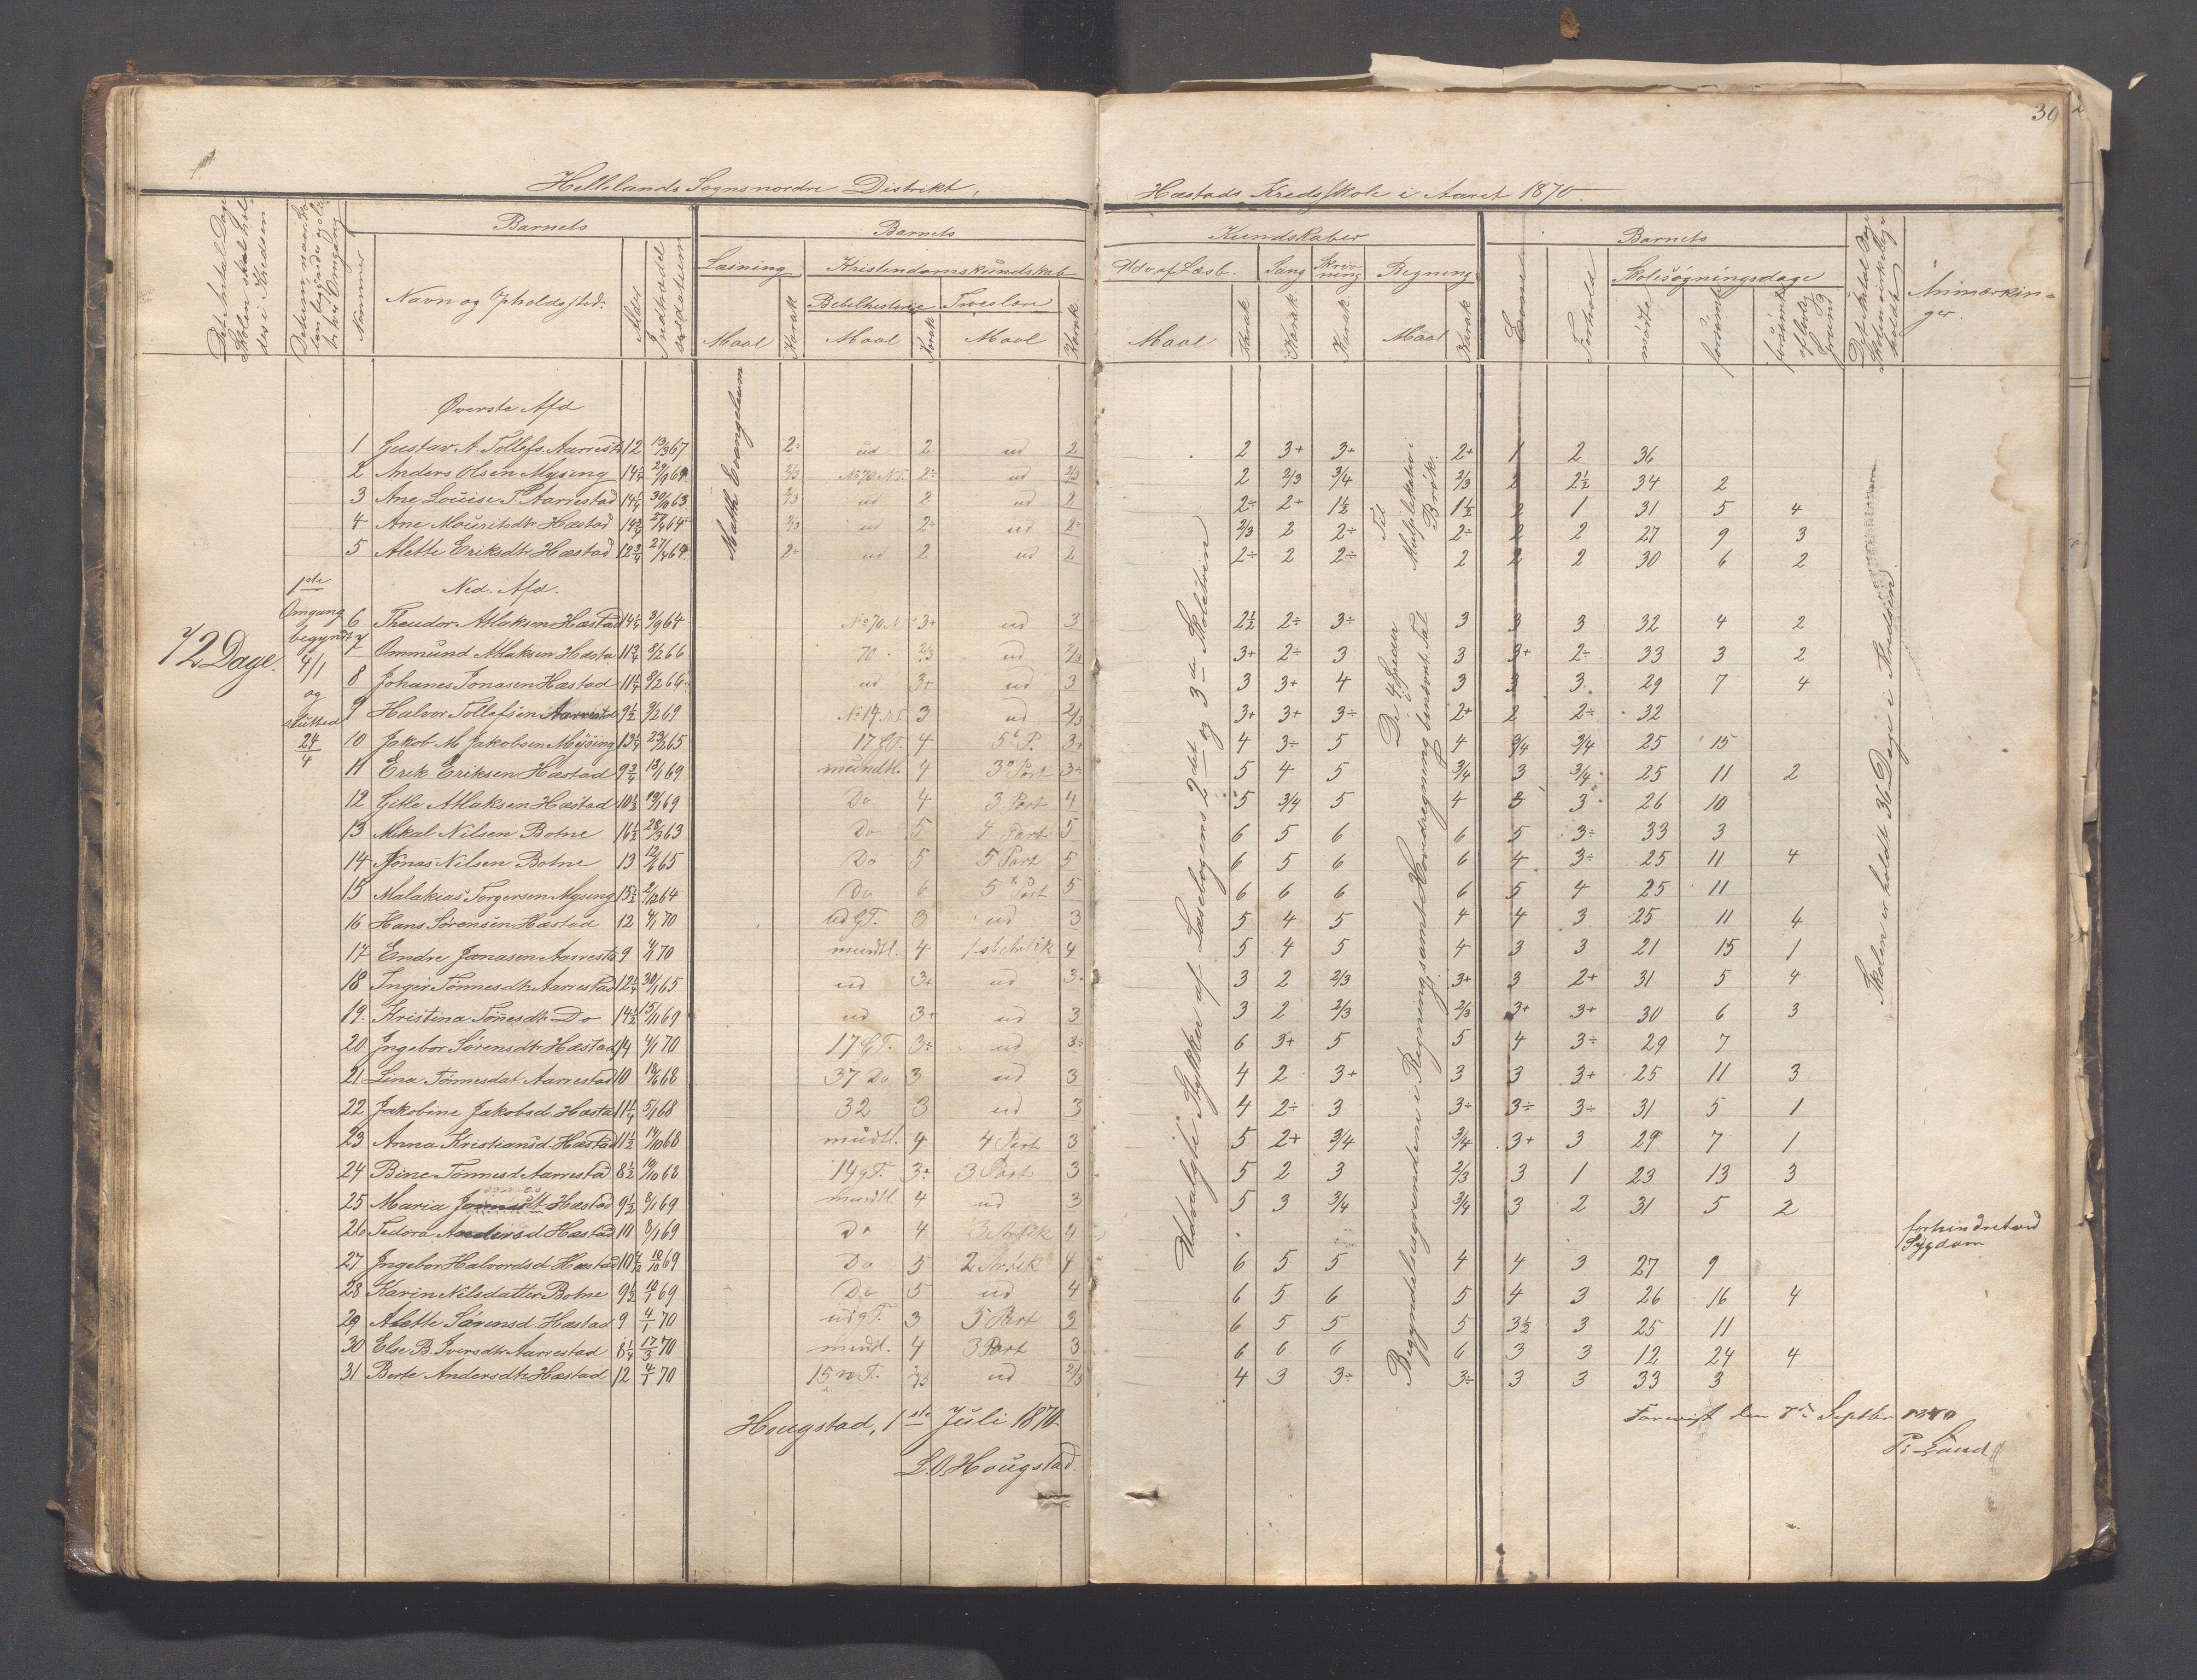 39
Hellelands Sogns nordre Distrikt,
Hæstads Kredsskole i Aaret 1870.
Det hele Antal Dage Skolen skal holdes i Kredsen
Barnets
Nummer
Navn og Opholdssted.
Alder
Indtrædelsesdatum
Barnets
Læsning
Maal
Karak
Kristendomskundskab
Bibelhistorie
Maal
Karak
Troeslære
Maal
Karak
Kundskaber
Udv. af Læsb.
Maal
Karak
Sang
Karak
Skrivning
Karak.
Regning
Maal
Karak
Barnets
Evner
Forhold
Skolesøgningsdage
mødte
forsømt
forsømt af lovlig Grund
Anmærkninger.
Øverste Afd
1 Gustav A. Tollefs. Aarrestd 12 13/3 67 2÷ ud 2 ud 2 2 3+ 3+ 2+ 1 2 36
2 Anders Olsen Mysing 14 1/4 29/9 64 2/3 No 70 N.T. 2÷ ud 2/3 2 2/3 3/4 2/3 2 2 1/2 34 2
3 Ane Louise T. Aarrestad 14 1/4 30/10 63 2/3 ud 2 ud 2 2÷ 2+ 1 1/2 1 1/2 2 1 31 5 4
4 Ane Mouritsdtr Hæstad 14 3/4 27/4 64 2/3 ud 2÷ ud 2÷ 2/3 2 2÷ 2÷ 2 2 27 9 3
5 Alette Eriksdtr Hæstad 12 3/4 27/4 64 2÷ ud 2 ud 2 2÷ 2 2÷ 2 2 2 30 6 2
Math. Evangelium
Til Multiplikation i Brøk.
Ned. Afd.
72 Dage.
1ste
Omgang
begyndt
4/1
og
slutted
24/4
6 Theodor Atlaksen Hæstad 14 1/4 3/9 64 No 70 N. 3+ ud 3 2 1/2 2÷ 3÷ 3 3 3 32 4 2
7 Ommund Atlaksen Hæsta 11 3/4 8/2 66 70 2/3 ud 2/3 3+ 2÷ 3 3 3+ 2÷ 33 3 2
8 Johanes Jonasen Hæstad 11 1/4 8/2 66 ud 3+ ud 3 3 3+ 4 3 3 3 29 7 4
9 Halvor Tollefsen Aarrestad 9 1/2 9/2 69 No 14 N.T. 3 ud 2/3 3+ 3+ 3÷ 2+ 2 2÷ 32
10 Jakob M Jakobsen Mysing 13 1/4 23/2 65 17 G.T. 4 5te P. 3+ 4 3÷ 5 4 3/4 3/4 25 15
11 Erik Eriksen Hæstad 9 3/4 13/1 69 mundtl. 4 3de Part 3÷ 5 4 5 3/4 3 3/4 25 11 2
12 Gitle Atlaksen Hæstad 10 1/2 19/1 69 Do 4 3 Part 4 5 3/4 5 4 3 3 26 10
13 Mikal Nilsen Botne 16 1/2 28/3 63 Do 5 4 Part 5 6 5 6 6 5 3÷ 33 3
14 Jonas Nilsen Botne 13 12/6 65 Do 5 5 Part 5 6 5 6 6 4 3÷ 25 11 4
15 Malakias Torgersen Mysing 15 1/2 2/12 64 Do 6 5te Part 5 6 6 6 6 5 4 25 11
16 Hans Sørensen Hæstad 12 4/1 70 ud G.T. 3 ud 3 5 4 5 4 4 3 25 11 4
17 Endre Jonasen Aarresta 9 4/1 70 mundtl. 4 4 5 4 5 4 3 3 21 15 1
18 Inger Tønnesdtr Aarrestad 12 1/4 30/1 65 ud 3+ ud 3+ 3 2 2/3 3+ 3 2+ 31 5 4
19. Kristina Tønesdtr Do 14 1/2 15/11 69 ud 3+ ud 3 3 2 2/3 2/3 3+ 3+ 30 6 3
20 Ingebor Sørensdtr Hæstad 14 4/1 70 17 G.T. 3÷ ud 3÷ 6 3+ 5 5 4 3÷ 29 7
21 Lina Tønnesdat. Aarrestad 10 18/6 68 37 Do 3 ud 3 4 2 3+ 3 3 3+ 25 11 3
22 Jakobine Jakobsd. Hæsta 11 1/4 5/1 68 32 3 ud 3 4 2÷ 3 3÷ 3÷ 3÷ 31 5 1
23 Anna Kristiansd. Hæstad 11 1/2 14/10 68 mudtl. 4 4 Part 3 5 2+ 3/4 3/4 3+ 3 29 7 1
24 Bine Tønnesd. Aarresta 8 1/2 19/10 68 14 g.T. 3÷ 3 Part 3 5 2 3 2/3 3 1 23 13 3
25 Maria Hæstad 9 1/2 8/1 69 mundtl. 4 ud 3 5 3 3/4 3/4 3 2 31 5 2
26 Tedora Andersd Hæstad 10 8/1 69 Do 4 3 Artik 4 forhindret ved Sygdom
27 Ingebor Halvorsd. Hæstad 10 1/2 10/10 69 Do 5 2 Artik 4 6 5 5 4 4 3 27 9
28 Karin Nilsdatter Botne 9 1/2 10/1 69 Do 5 ud 4 6 5 6 5 4 3 26 16 4
29 Alette Sørensd. Hæstad 9 4/1 70 ud g.T. 3 5 Part 3 6 5 5 5 3 1/2 3 25 11
30 Else B. Iversdtr Aarrestad 8 1/4 17/3 70 mundtl. 4 3 Part 3 6 6 6 6 3 3 12 24 4
31 Berte Andersdtr Hæstad 12 4/1 70 15 n.T. 2/3 ud 2/3 4 3 3÷ 3÷ 3 3 33 3
Udvalgte Stykker af Læsebogens 2det og 3die Skoletrin
De 4 Species i
Begyndelsesgrundene i Regning samt Hovedregning benævnt Tal
Skolen er holdt 36 Dage i Kredsen.
Hougstad, 1ste Juli 1870
L. O. Hougstad.
Forevist den 8de Septbr 1870
P. Lund